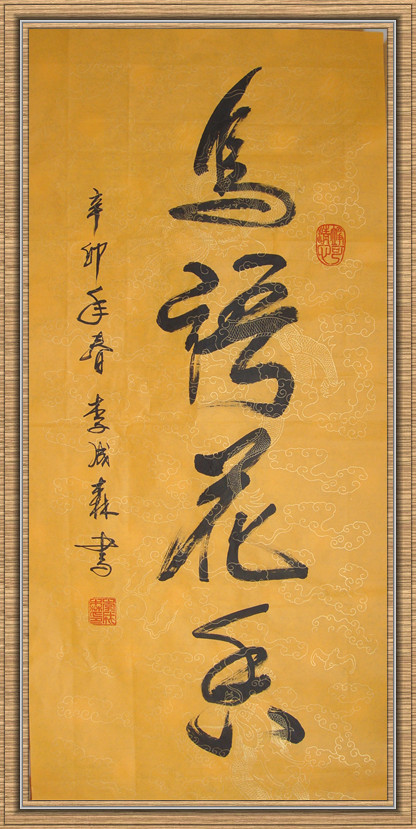 鳥語花香
辛卯年春 李成森書